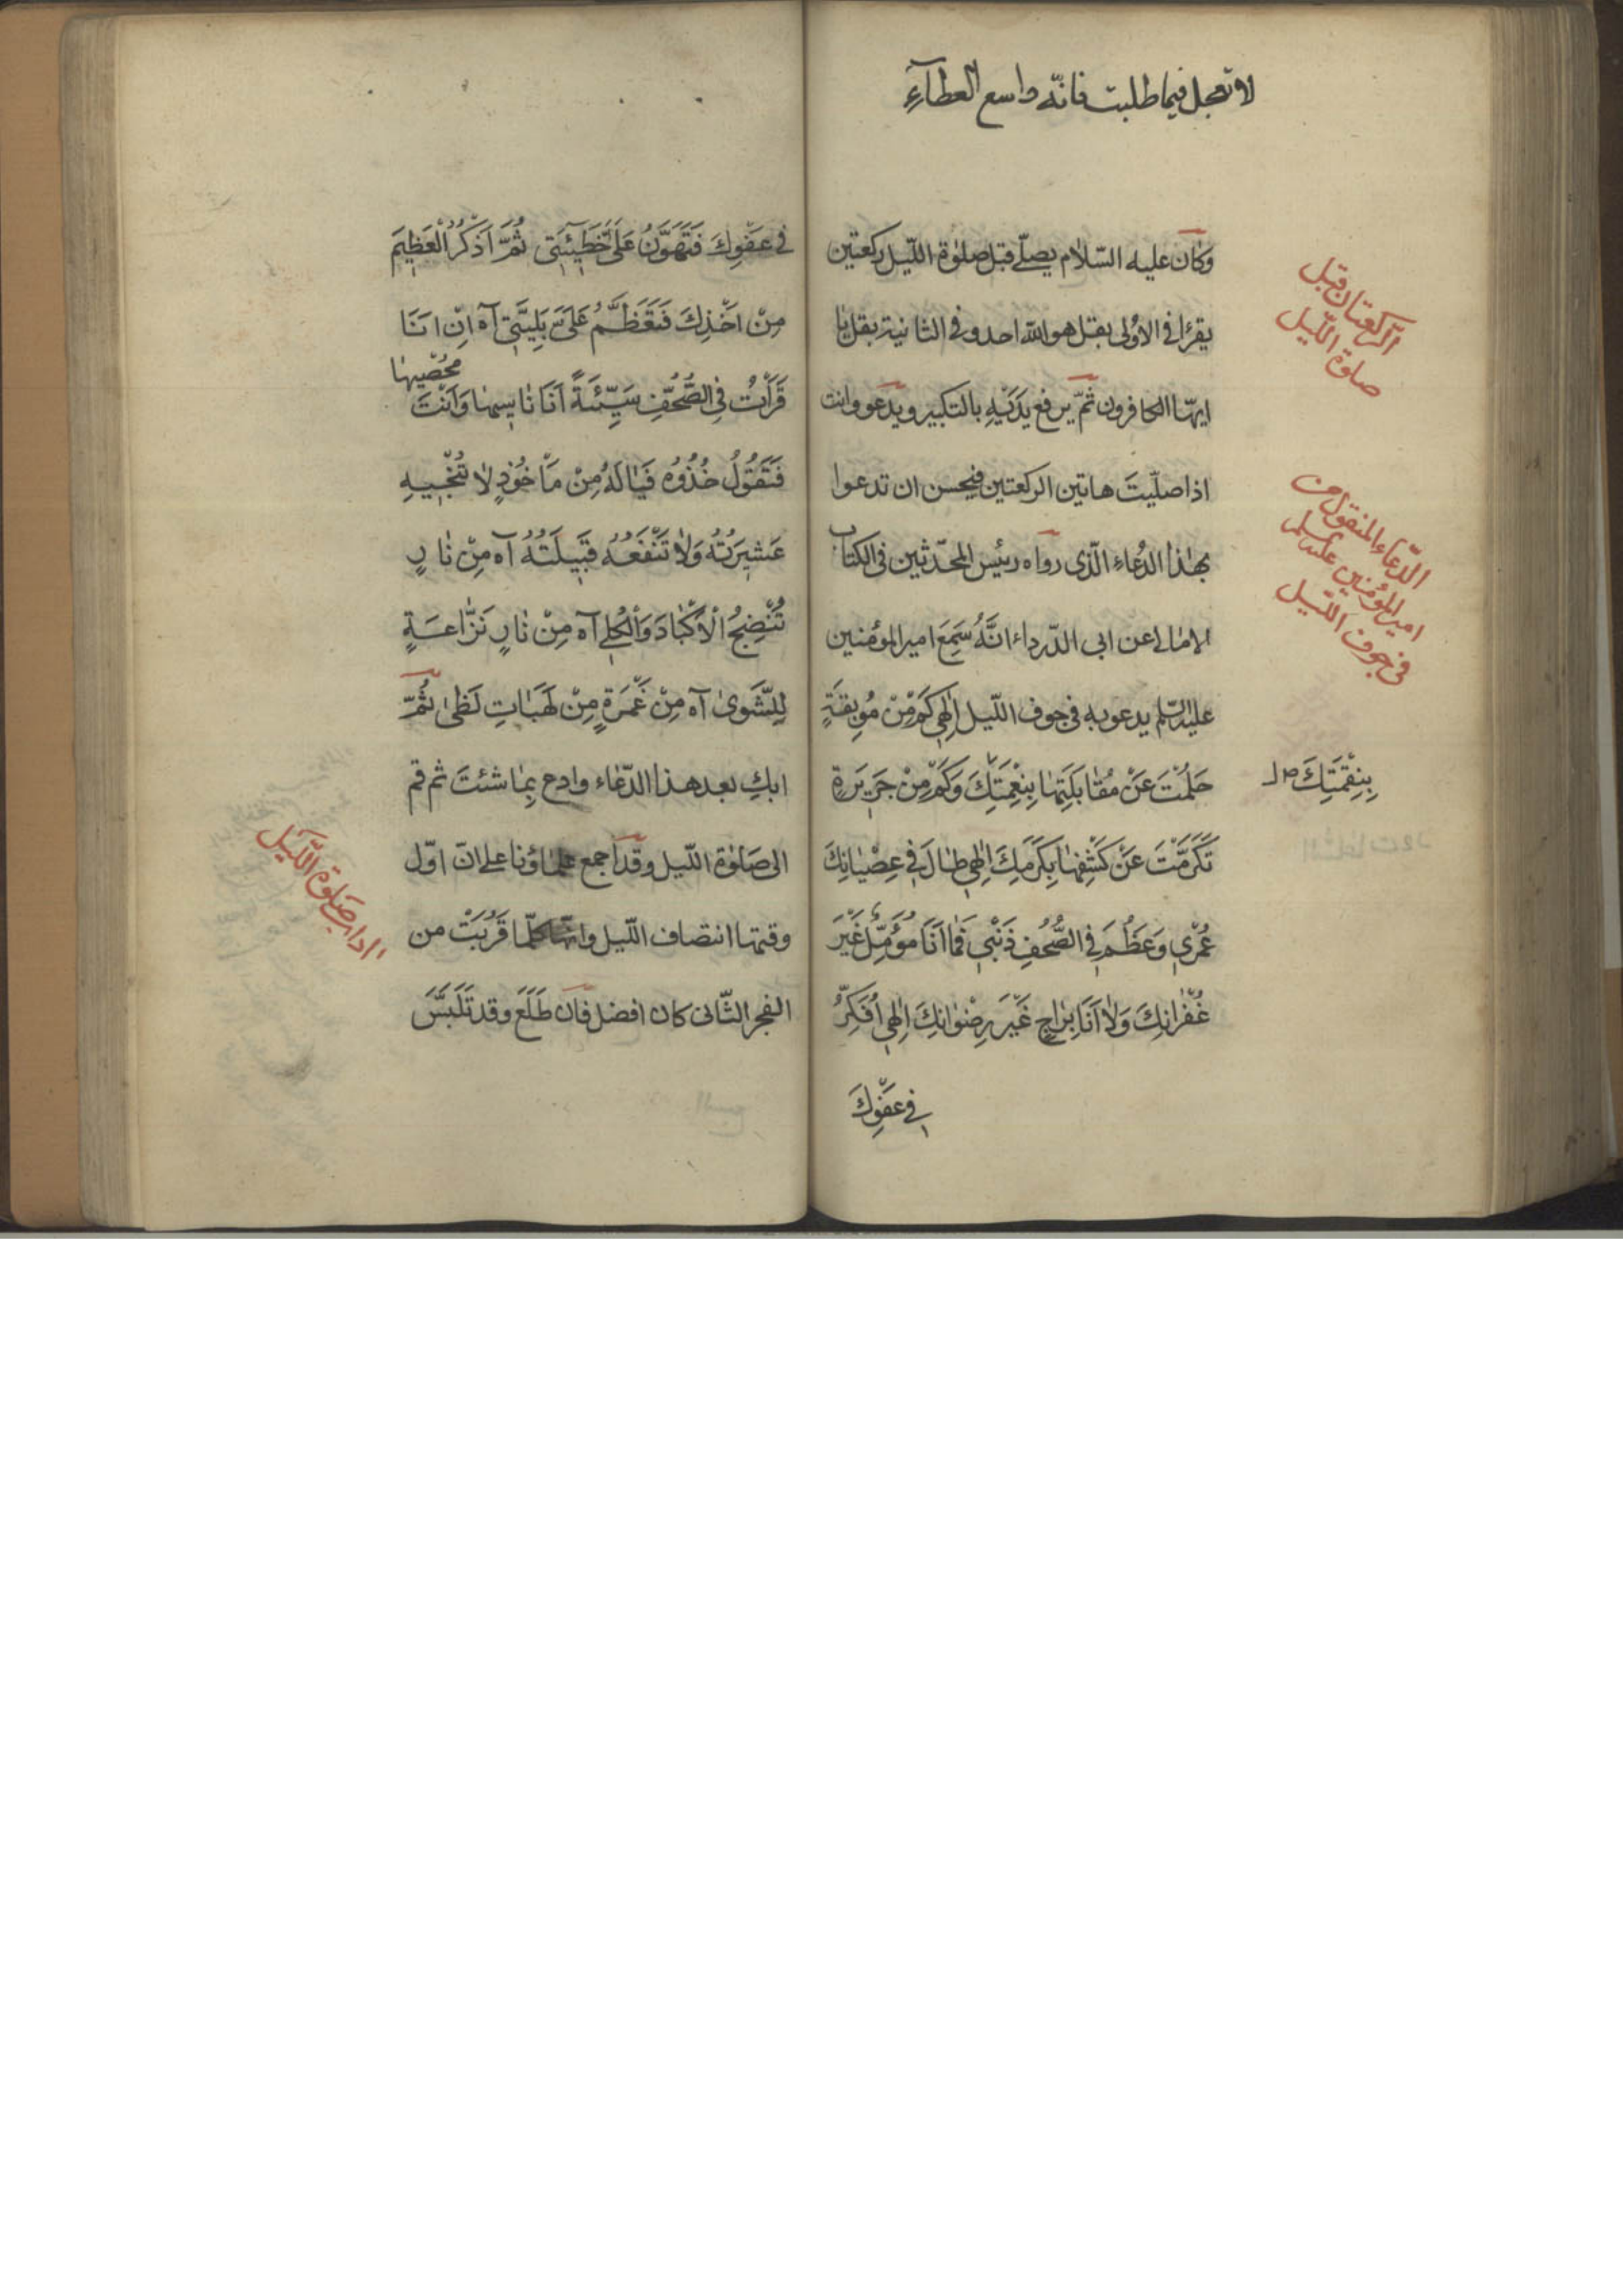 لا تعجل فيما طلبت فانّه واسع العطآءِ
وكان عليه السّلام يصلّے قبل صلوٰة اللّيل ركعتين
الرّكعتان قبل
صلوة اللّيل
يقرأ فى الاولٰى بقل هو اللّٰه احد وفى الثانية بقل يا
ايهّا الكافرون ثمّ يرفع يَدَيْهِ بالتكبير ويدعو وانت
اذا صلّيتَ هاتين الركعتين فيحسن ان تدعوا
الدّعاء المنقول من
امير المؤمنين عليه السلم
فى جوف اللّيل
بهٰذا الدُعاء الّذى رواه رئيس المحدّثين فى الكتاب
الامالى عن ابى الدّرداء انَّهُ سَمِعَ امير المؤمنين
عليه السّلم يدعو به فى جوف اللّيل اِلٰهِي كَمْ مِنْ مُوبِقَةٍ
حَلُمْتَ عَنْ مُقٰابَلَتِهٰا بِنِعْمَتِكَ وَكَمْ مِنْ جَرِيرَةٍ
بِنِقْمَتِكَ صل
تَكَرَّمْتَ عَنْ كَشْفِهٰا بِكَرَمِكَ اِلٰهِي طٰالَ فِي عِصْيٰانِكَ
عُمْرِي وَعَظُمَ فِي الصُّحُفِ ذَنْبِي فَمٰا اَنَا مُؤَمِّلٌ غَيْرَ
غُفْرٰانِكَ وَلٰا اَنَا بِرٰاجٍ غَيْرَ رِضْوٰانِكَ اِلٰهِي اُفَكِّرُ
فِي عَفْوِكَ
فِي عَفْوِكَ فَتَهَوَّنُ عَلَيَّ خَطِيۤئَتِي ثُمَّ اَذْكُرُ الْعَظِيمَ
مِنْ اَخْذِكَ فَتَعْظُمُ عَلَيَّ بَلِيَّتِي آه اِنْ اَنَا
قَرَأْتُ فِي الصُّحُفِ سَيِّئَةً اَنَا نٰاسِيهٰا وَاَنْتَ
مُحْصِيهٰا
فَتَقُولُ خُذُوهُ فَيٰالَهُ مِنْ مَأْخُوذٍ لٰا تُنْجِيهِ
عَشِيرَتُهُ وَلٰا تَنْفَعُهُ قَبِيلَتُهُ آه مِنْ نٰارٍ
تُنْضِجُ الْاَكْبٰادَ وَالْكُلٰى آه مِنْ نٰارٍ نَزّٰاعَةٍ
لِلشَّوىٰ آه مِنْ غَمْرَةٍ مِنْ لَهَبٰاتِ لَظىٰ ثُمَّ
ابكِ بعد هذا الدّعٰاء وادع بِمٰا شئتَ ثم قم
الى صَلوٰة اللّيل وقد اجمع علماؤنا على انّ اوّل
اداب صَلوة اللَّيل
وقتها انتصاف اللّيل وانّها كلّما قَرُبَتْ من
الفجر الثّانى كان افضل فان طَلَعَ وقد تَلَبَّسَ